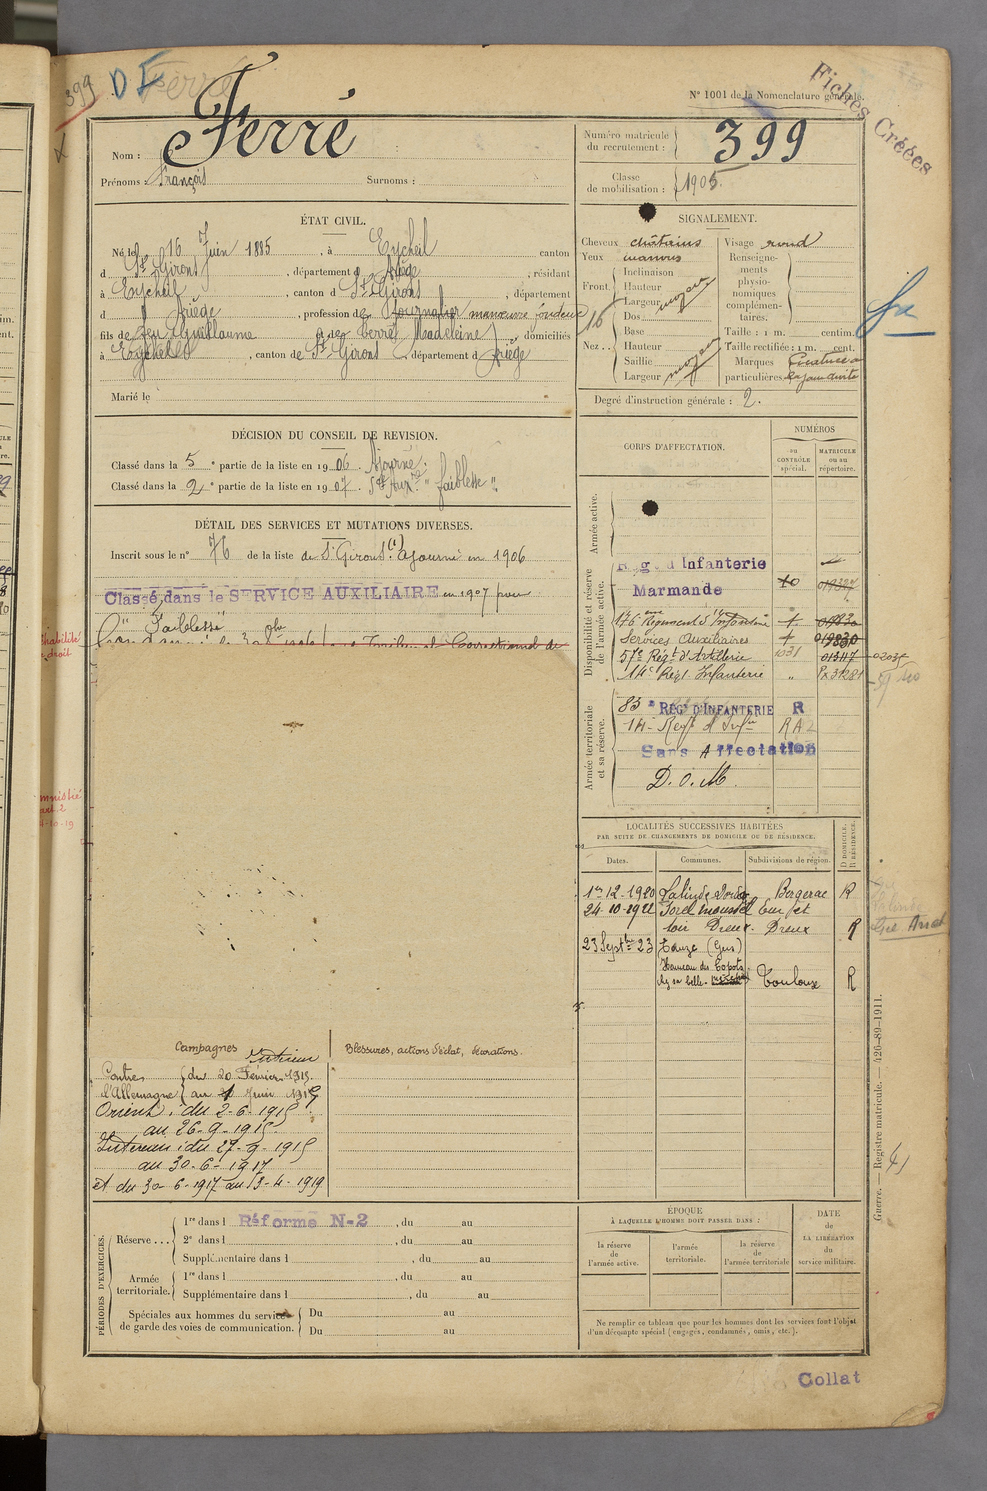 399
D F
Ferré
Fiches Créées
N° 1001 de la Nomenclature générale.
Nom : Ferré
Prénoms : François Surnoms :
Numéro matricule du recrutement : 399
Classe de mobilisation : 1905.
ÉTAT CIVIL.
Né le 16 Juin 1885, à Eycheil canton
d St Girons, département d Ariège, résidant
à Eycheil, canton d St Girons, département
d Ariège, profession de Journalier manœuvre
fils de feu Guillaume et de Madeleine domiciliés
à Eycheil, canton de St Girons, département d Ariège
Marié le
SIGNALEMENT.
Cheveux châtains
Yeux marrons
Front. Inclinaison
Hauteur
Largeur moyen
Nez . . Dos
Base
Hauteur
Saillie
Largeur moyen
Visage rond
Renseignements physionomiques complémentaires.
Taille : 1 m. centim.
Taille rectifiée : 1 m. cent.
Marques particulières Cicatrice à la joue droite
Degré d'instruction générale : 2.
DÉCISION DU CONSEIL DE REVISION.
Classé dans la 5e partie de la liste en 1906. Ajourné.
Classé dans la 2e partie de la liste en 1907. Sce Aux. "faiblesse"
DÉTAIL DES SERVICES ET MUTATIONS DIVERSES.
Inscrit sous le n° 76 de la liste de St Girons. Ajourné en 1906
Classé dans le SERVICE AUXILIAIRE en 1907 pour
"Faiblesse"
CORPS D'AFFECTATION.
NUMÉROS
au CONTRÔLE spécial.
MATRICULE ou au répertoire.
Armée active.
Disponibilité et réserve de l'armée active.
Infanterie
Marmande
176 eme Régiment d'Infanterie
Services Auxiliaires
57e Régt d'Artillerie 01347
14e Régt Infanterie "
Armée territoriale et sa réserve.
83e REGt D'INFANTERIE R
14e Regt d'Infie RA
Sans Affectation
D. O. M.
LOCALITÉS SUCCESSIVES HABITÉES
PAR SUITE DE CHANGEMENTS DE DOMICILE OU DE RÉSIDENCE.
Dates. Communes. Subdivisions de région. D DOMICILE. R RÉSIDENCE.
1er 12-1920 Lalinde Bergerac R
24-10-1922 Sorel Moussel Eur et
loir Dreux. Dreux R
23 Septbre 23 Eauze (Gers)
Toulouse R
Campagnes
Blessures, actions d'éclat, décorations.
Intérieur
Contre l'Allemagne du 20 Février 1915.
au 1 Juin 1915
Orient : du 2-6-1915
au 26-9-1915.
Intérieur : du 27-9-1915
au 30-6-1917
et du 30-6-1917 au 13-4-1919
PÉRIODES D'EXERCICES.
Réserve . . . 1re dans l Réforme N-2, du au
2e dans l , du au
Supplémentaire dans l , du au
Armée territoriale. 1re dans l , du au
Supplémentaire dans l , du au
Spéciales aux hommes du service de garde des voies de communication. Du au
Du au
ÉPOQUE
À LAQUELLE L'HOMME DOIT PASSER DANS :
la réserve de l'armée active.
l'armée territoriale.
la réserve de l'armée territoriale
DATE de LA LIBÉRATION du service militaire.
Ne remplir ce tableau que pour les hommes dont les services font l'objet
d'un décompte spécial (engagés, condamnés, omis, etc.).
Guerre. — Registre matricule. — 426-89-1911.
Collat